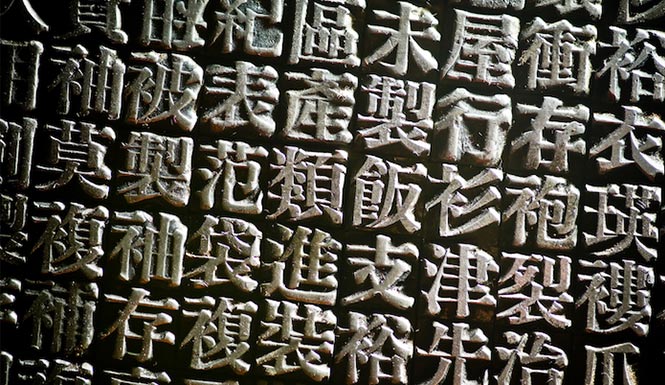 世紀區未屋衝裕
袖被表產製行存衣
莫製范類飯衫袍瑛
製複袖袋進支津裂褸
補存複裝裕先冶